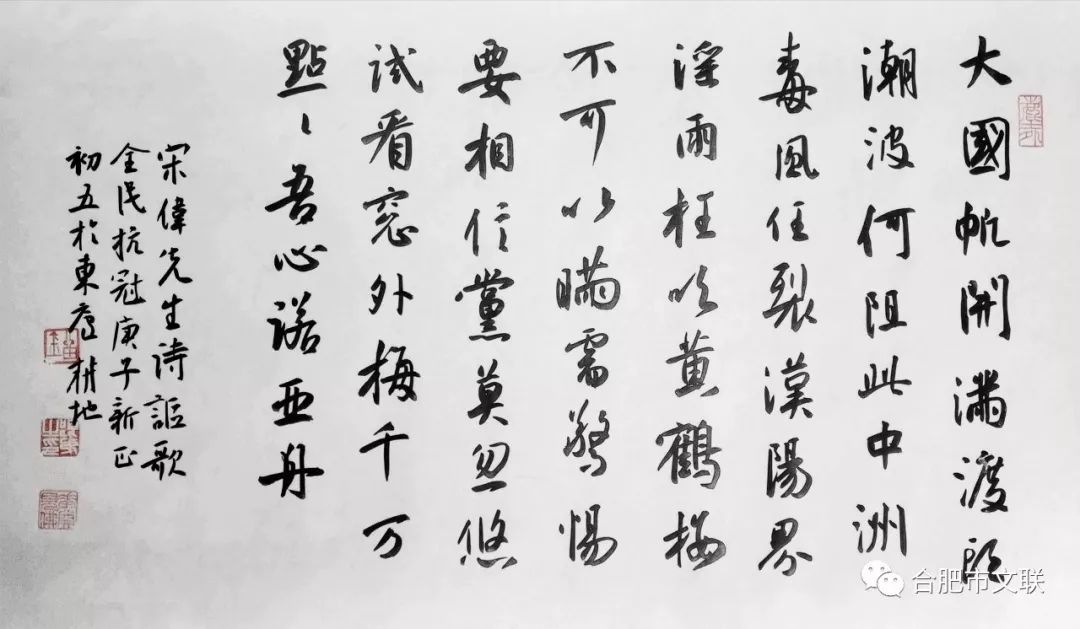 大國帆開滿渡頭
潮波何阻此中洲
毒風任裂漢陽界
淫雨枉吹黄鶴樓
不可以瞞需警惕
要相信黨莫忽悠
试看窓外梅千万
點點吾心諾亚舟
宋偉先生诗謳歌
全民抗冠庚子新正
初五於東窓耕地
合肥市文联